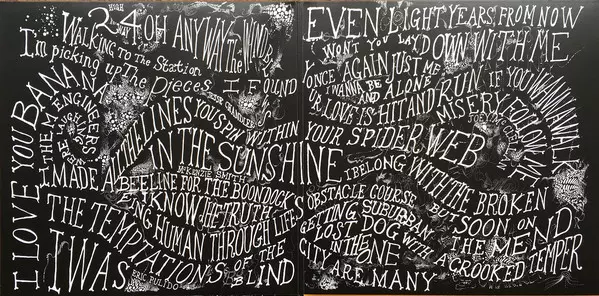 HIGH
24 OH ANYWAY THE WIND
WALKING TO THE STATION
I'm PICKING UP THE PIECES I FOUND
I LOVE YOU BANANA
I'M THE ENGINEER
ALL THE LINES YOU SPIN WITHIN
IN THE SUNSHINE
MCKENZIE SMITH
I MADE A BEELINE FOR THE BOONDOCKS
KNOW THE TRUTH
HUMAN THROUGH LIFE'S
THE TEMPTATIONS OF THE BLIND
I WAS
ERIC PULIDO
EVEN EIGHT YEARS FROM NOW
WON'T YOU LAY DOWN WITH ME
ONCE AGAIN JUST ME
I WANNA BE ALONE
AND RUN IF YOU WANNA WALK
OUR LOVE IS HIT AND MISERY
FOLLOW
YOUR SPIDER WEB
I BELONG WITH THE BROKEN
OBSTACLE COURSE BUT SOON ON
GETTING SUBURBAN THE MEND
LOST DOG WITH A CROOKED TEMPER
IN THE ONE
CITY ARE MANY